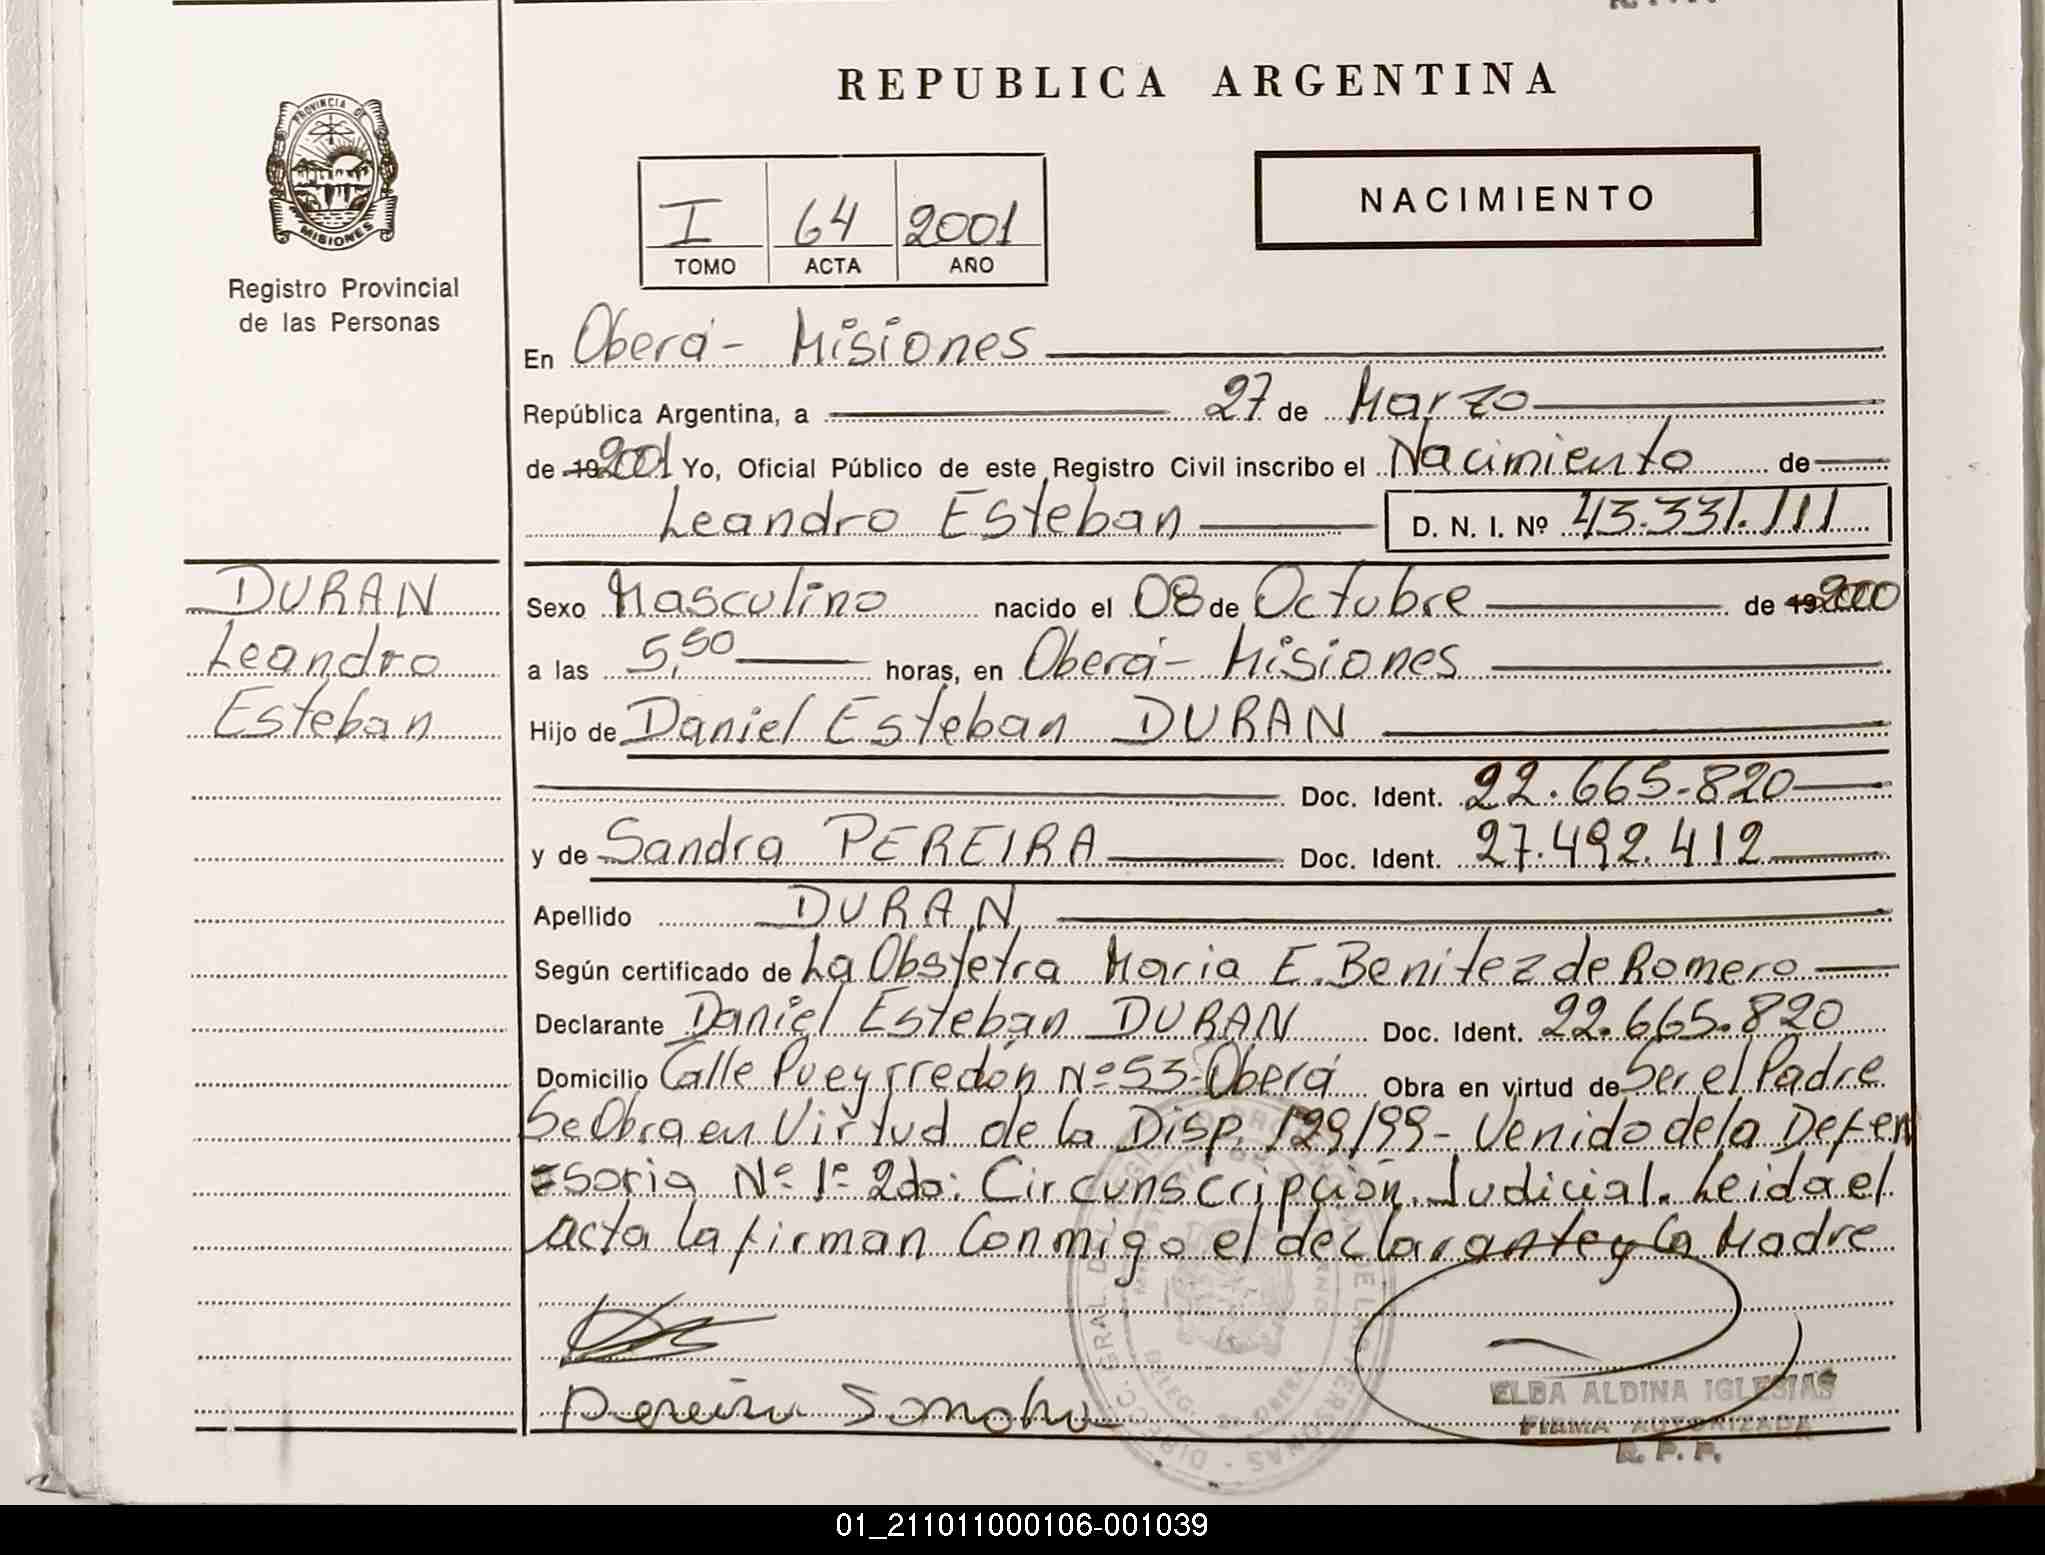 REPUBLICA ARGENTINA
PROVINCIA DE
MISIONES
Registro Provincial
de las Personas
I 64 2001
TOMO ACTA AÑO
NACIMIENTO
En Oberá - Misiones
República Argentina, a 27 de Marzo
de 19 2001 Yo, Oficial Público de este Registro Civil inscribo el Nacimiento de
Leandro Esteban D. N. I. Nº 43.331.111
DURAN
Leandro
Esteban
Sexo Masculino nacido el 08 de Octubre de 19 2000
a las 5,50 horas, en Oberá - Misiones
Hijo de Daniel Esteban DURAN
Doc. Ident. 22.665.820
y de Sandra PEREIRA Doc. Ident. 27.492.412
Apellido DURAN
Según certificado de La Obstetra Maria E. Benitez de Romero
Declarante Daniel Esteban DURAN Doc. Ident. 22.665.820
Domicilio Calle Pueyrredón Nº 53 - Oberá Obra en virtud de Ser el Padre
Se Obra en Virtud de la Disp. 129/99 - Venido de la Defen
=soria Nº 1º 2da: Circunscripción Judicial. Leida el
acta la firman Conmigo el declarante y la Madre
Pereira Sandra
ELBA ALDINA IGLESIAS
FIRMA AUTORIZADA
R. P. P.
01_211011000106-001039